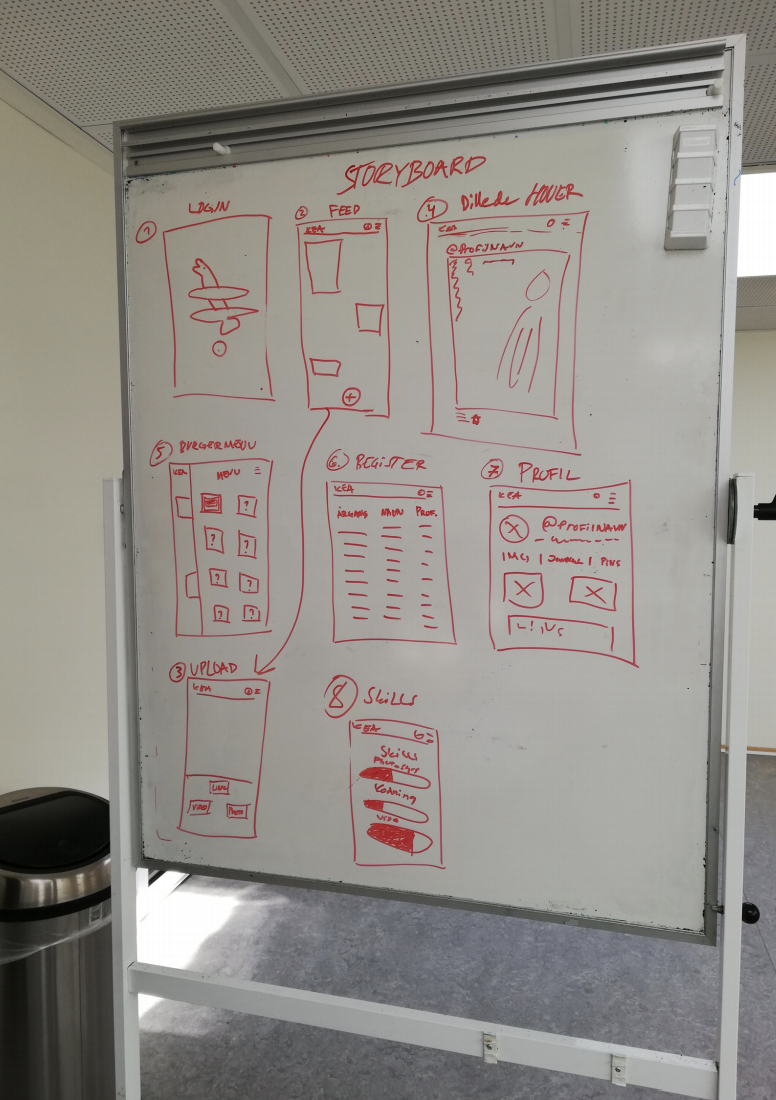 STORYBOARD
1 LOGIN
2 FEED
KEA
+
4 Billede HOVER
KEA
@PROFILNAVN
5 BURGERMENU
KEA MENU
?
? ?
? ?
? ?
6. REGISTER
KEA
ÅRGANG NAVN PROF.
7 PROFIL
KEA
@PROFILNAVN
IMG | | PINS
3 UPLOAD
KEA
LINK
VIDEO PHOTO
8 Skills
KEA
Skills
Photoshop
Kodning
VIDEO